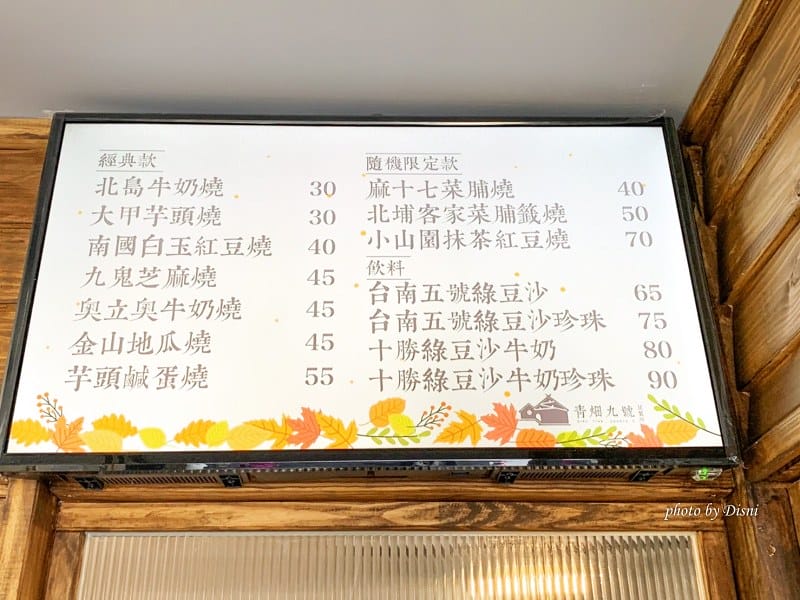 經典款
北島牛奶燒 30
大甲芋頭燒 30
南國白玉紅豆燒 40
九鬼芝麻燒 45
奧立奧牛奶燒 45
金山地瓜燒 45
芋頭鹹蛋燒 55
隨機限定款
麻十七菜脯燒 40
北埔客家菜脯籤燒 50
小山園抹茶紅豆燒 70
飲料
台南五號綠豆沙 65
台南五號綠豆沙珍珠 75
十勝綠豆沙牛奶 80
十勝綠豆沙牛奶珍珠 90
青畑九號
photo by Disni